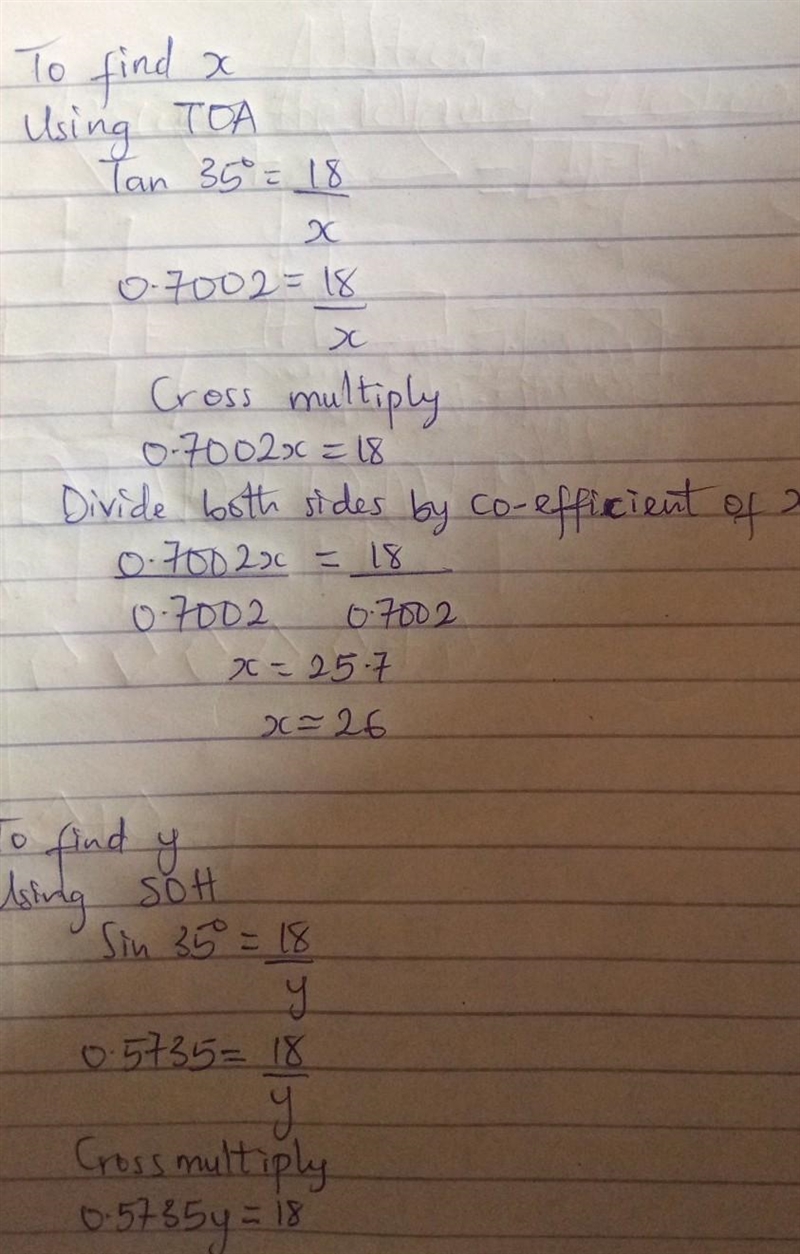 To find x
Using TOA
Tan 35° = 18/x
0.7002 = 18/x
Cross multiply
0.7002x = 18
Divide both sides by co-efficient of x
0.7002x/0.7002 = 18/0.7002
x = 25.7
x = 26
To find y
Using SOH
Sin 35° = 18/y
0.5735 = 18/y
Cross multiply
0.5735y = 18